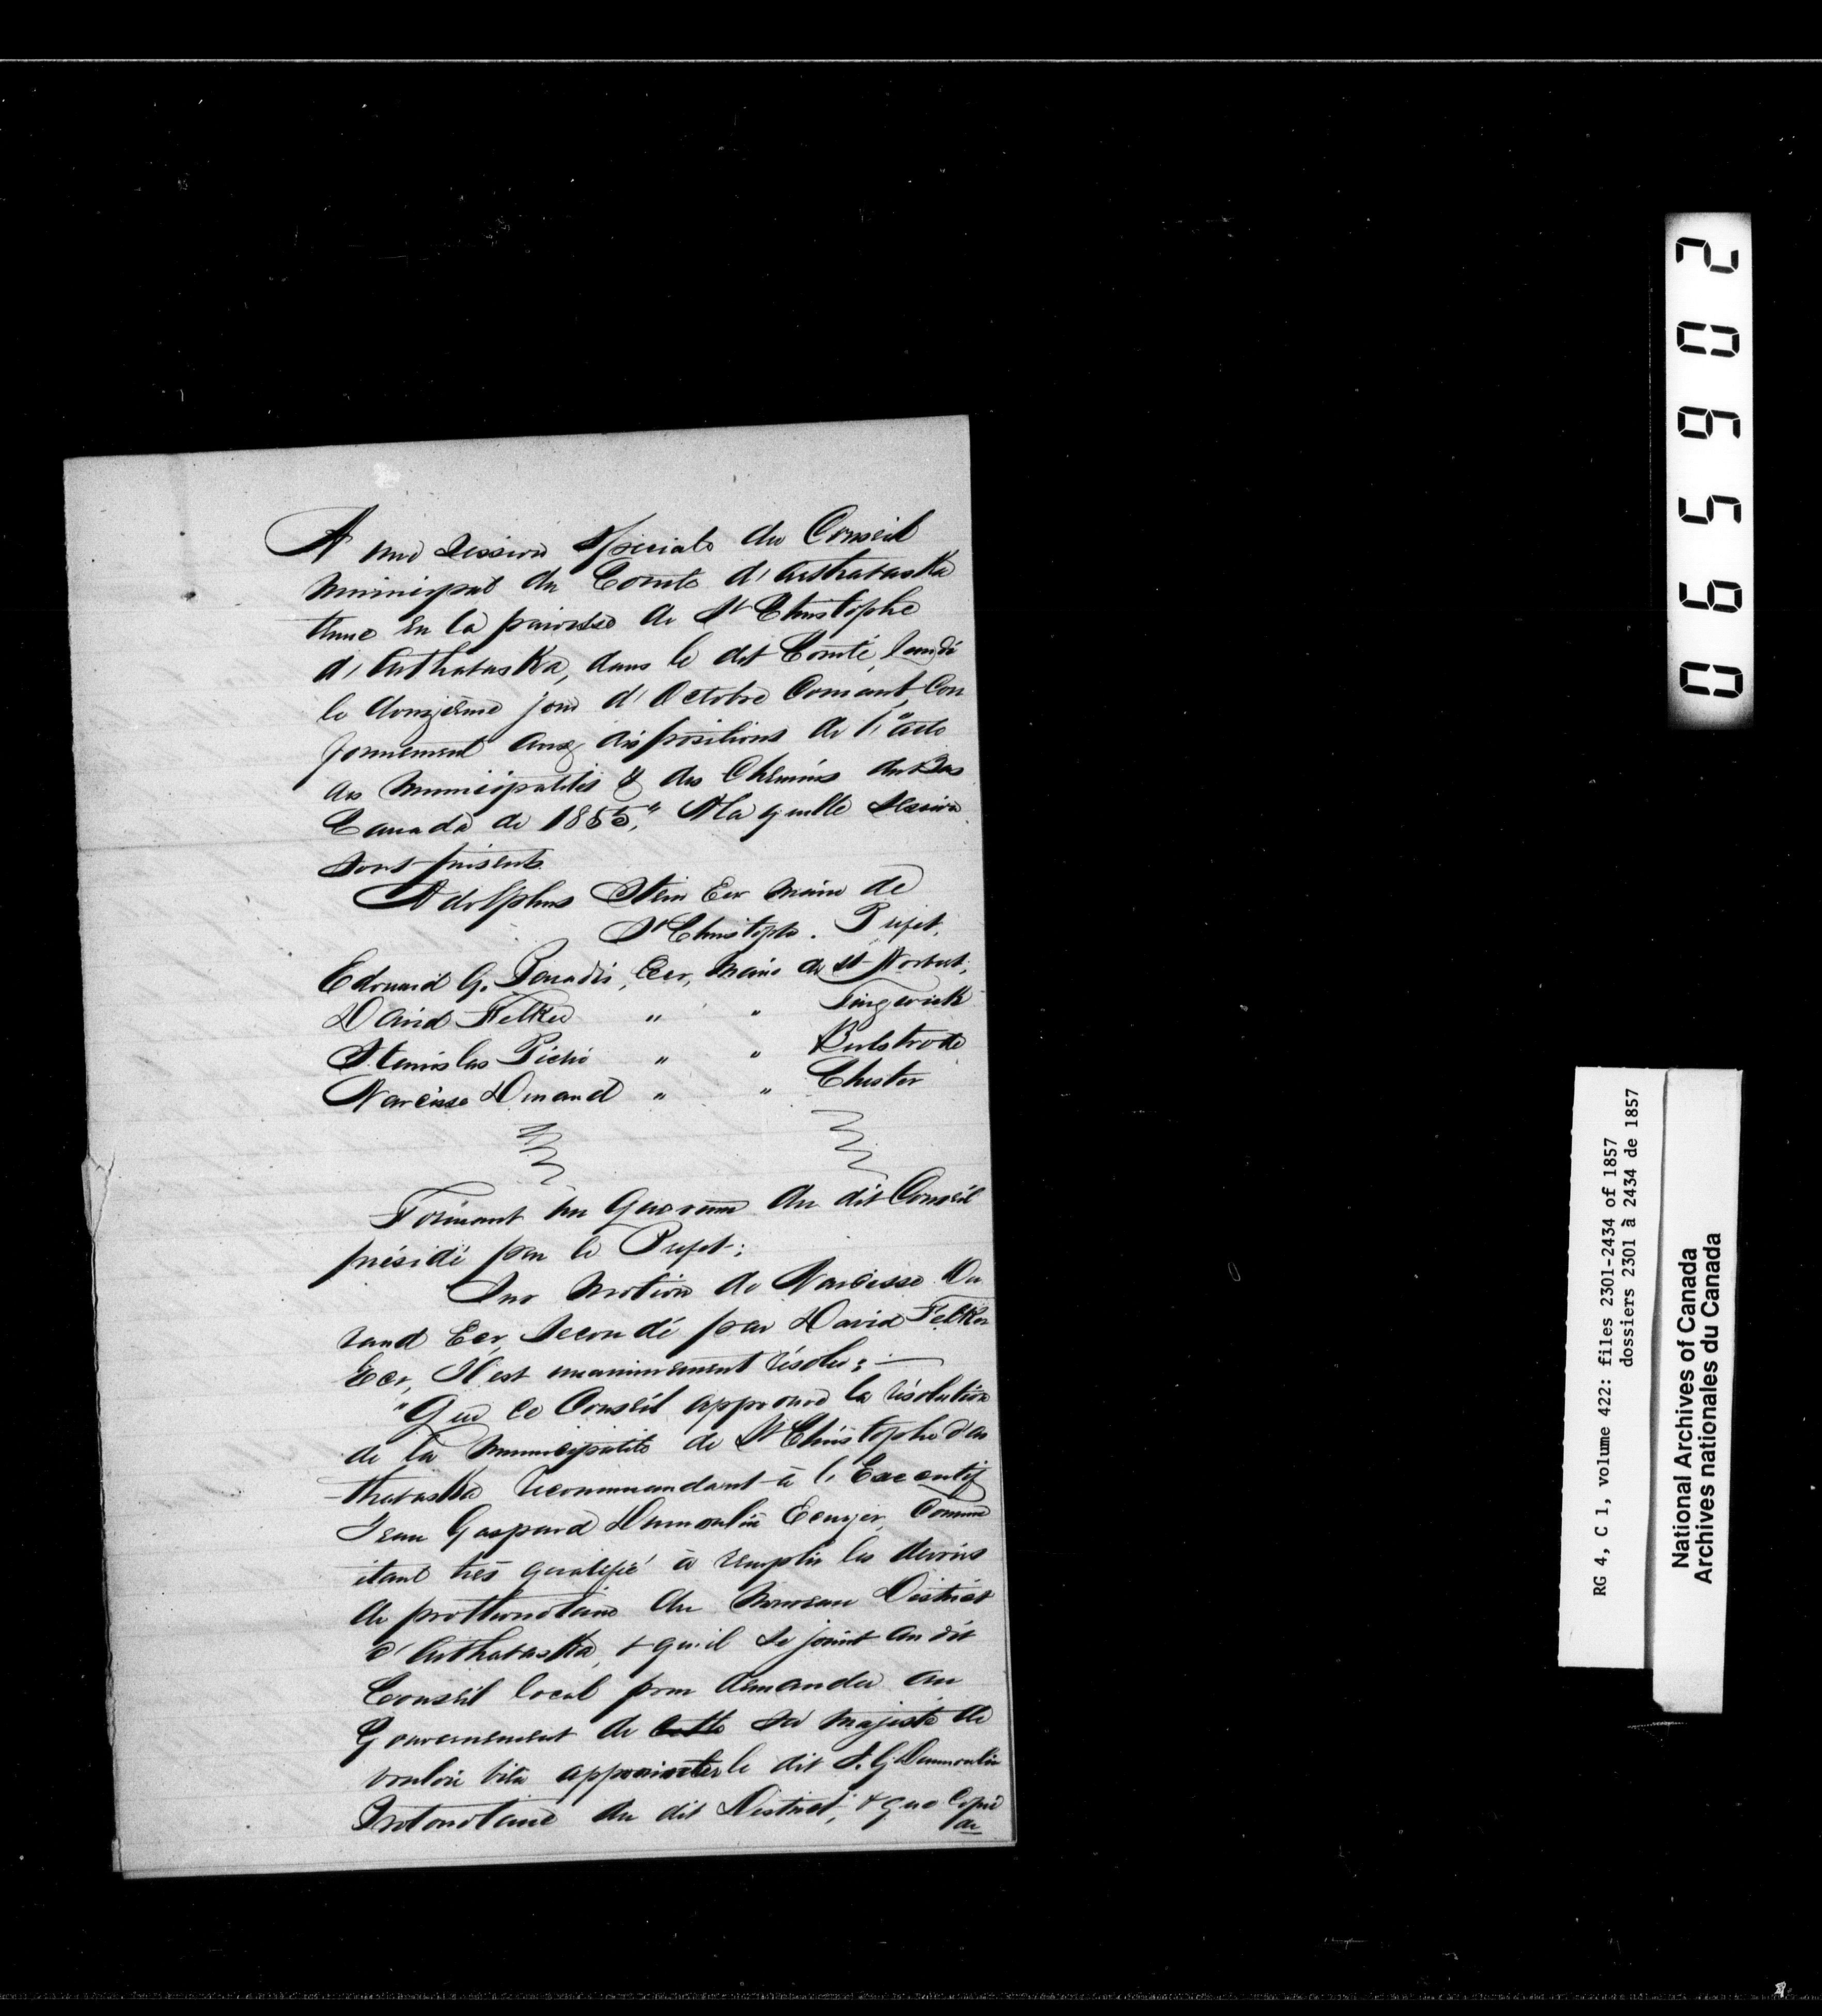 A une Session Speciale du Conseil
Municipal du Comté d'Arthabaska
tenue en la paroisse de St Christophe
d'Arthabaska, dans le dit Comté, lundi
le douzième jour d'Octobre Courant, Con
formement aux dispositions de l'"acte
des Municipalités & des Chemins du Bas
Canada de 1855," A laquelle Session
sont présents
Adolphus Stein Ecr Maire de
St Christophe. Préfet,
Edouard G. Paradis, Ecr, Maire de St Norbert,
David Felker " " Tingwick
Stanislas Piché " " Bulstrode
Narcisse Durand " " Chester
Formant un Quorum du dit Conseil
présidé par le Préfet;
Sur Motion de Narcisse Du
rand Ecr, Secondé par David Felker
Ecr, Il est unanimement résolu: —
"Que ce Conseil approuve la résolution
de la Municipalité de St Christophe d'Ar
thabaska recommandant à l'Executif
Jean Gaspard Dumoulin Ecuyer, Comme
étant très qualifié à remplir les devoirs
de prothonotaire du Nouveau District
d'Arthabaska, & qu'il se joint au dit
Conseil local pour demander au
Gouvernement de cette Sa Majesté de
vouloir bien appointer le dit J. G Dumoulin
Protonotaire du dit District, & que Copie
de
065902
RG 4, C 1, volume 422: files 2301-2434 of 1857
dossiers 2301 à 2434 de 1857
National Archives of Canada
Archives nationales du Canada